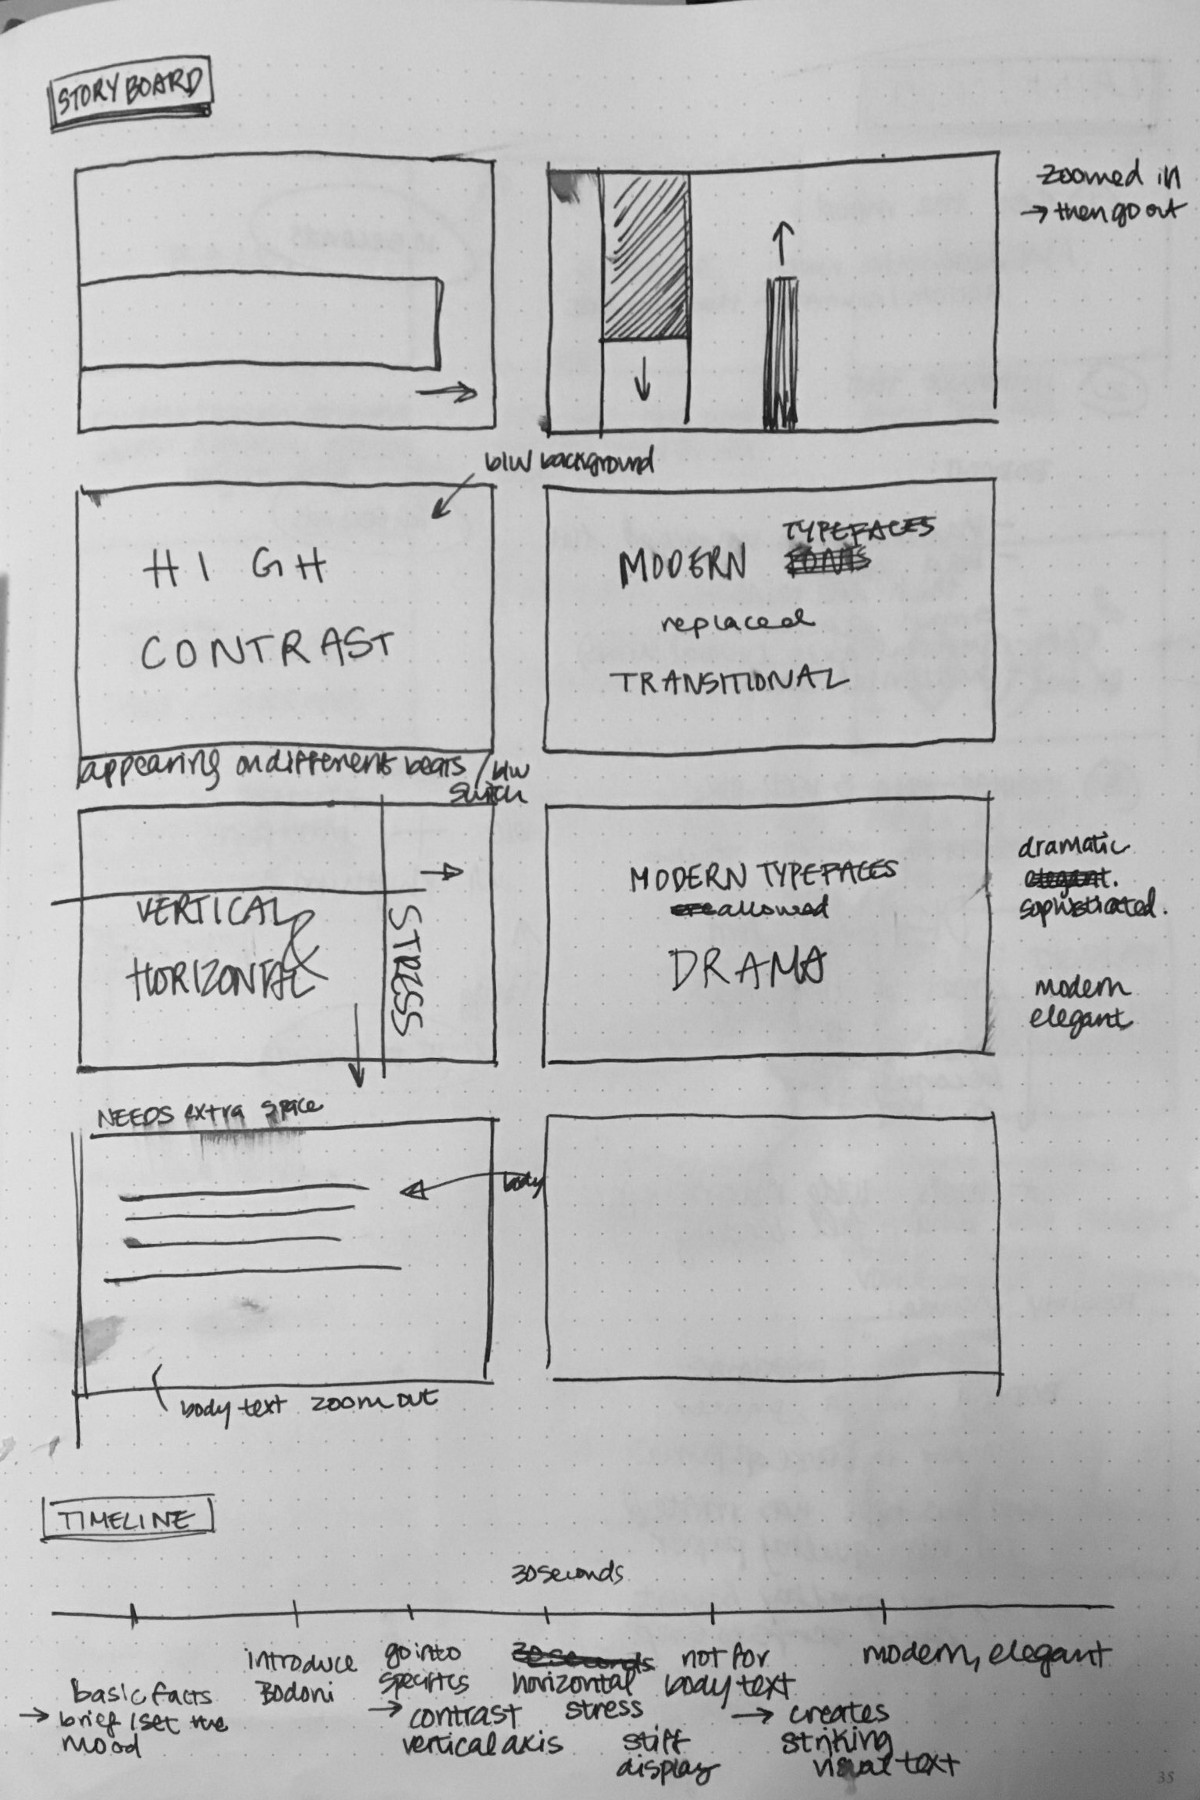 STORYBOARD
zoomed in
→ then go out
b/w background
HIGH
CONTRAST
TYPEFACES
MODERN FONTS
replaced
TRANSITIONAL
appearing on different beats / b/w
switch
VERTICAL
&
HORIZONTAL
STRESS
MODERN TYPEFACES
allowed
DRAMA
dramatic
elegant.
sophisticated.
modern
elegant
NEEDS extra space
body
body text zoom out
TIMELINE
30 seconds
basic facts
→ brief / set the
mood
introduce
Bodoni
go into
specifics
→ contrast
vertical axis
30 seconds
horizontal
stress
stiff
display
not for
body text
→ creates
striking
visual text
modern, elegant
35